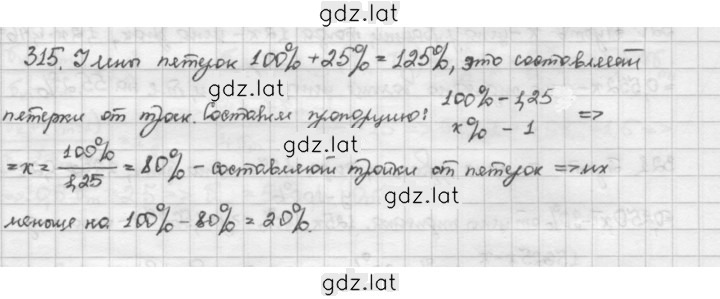 gdz.lat
315. Имеем пятерок 100% + 25% = 125%, это составляют
gdz.lat gdz.lat
пятерки от троек. Составим пропорцию: 100% - 1,25
x% - 1 =>
gdz.lat
= x = 100% / 1,25 = 80% - составляют тройки от пятерок => их
gdz.lat gdz.lat
меньше на 100% - 80% = 20%.
gdz.lat